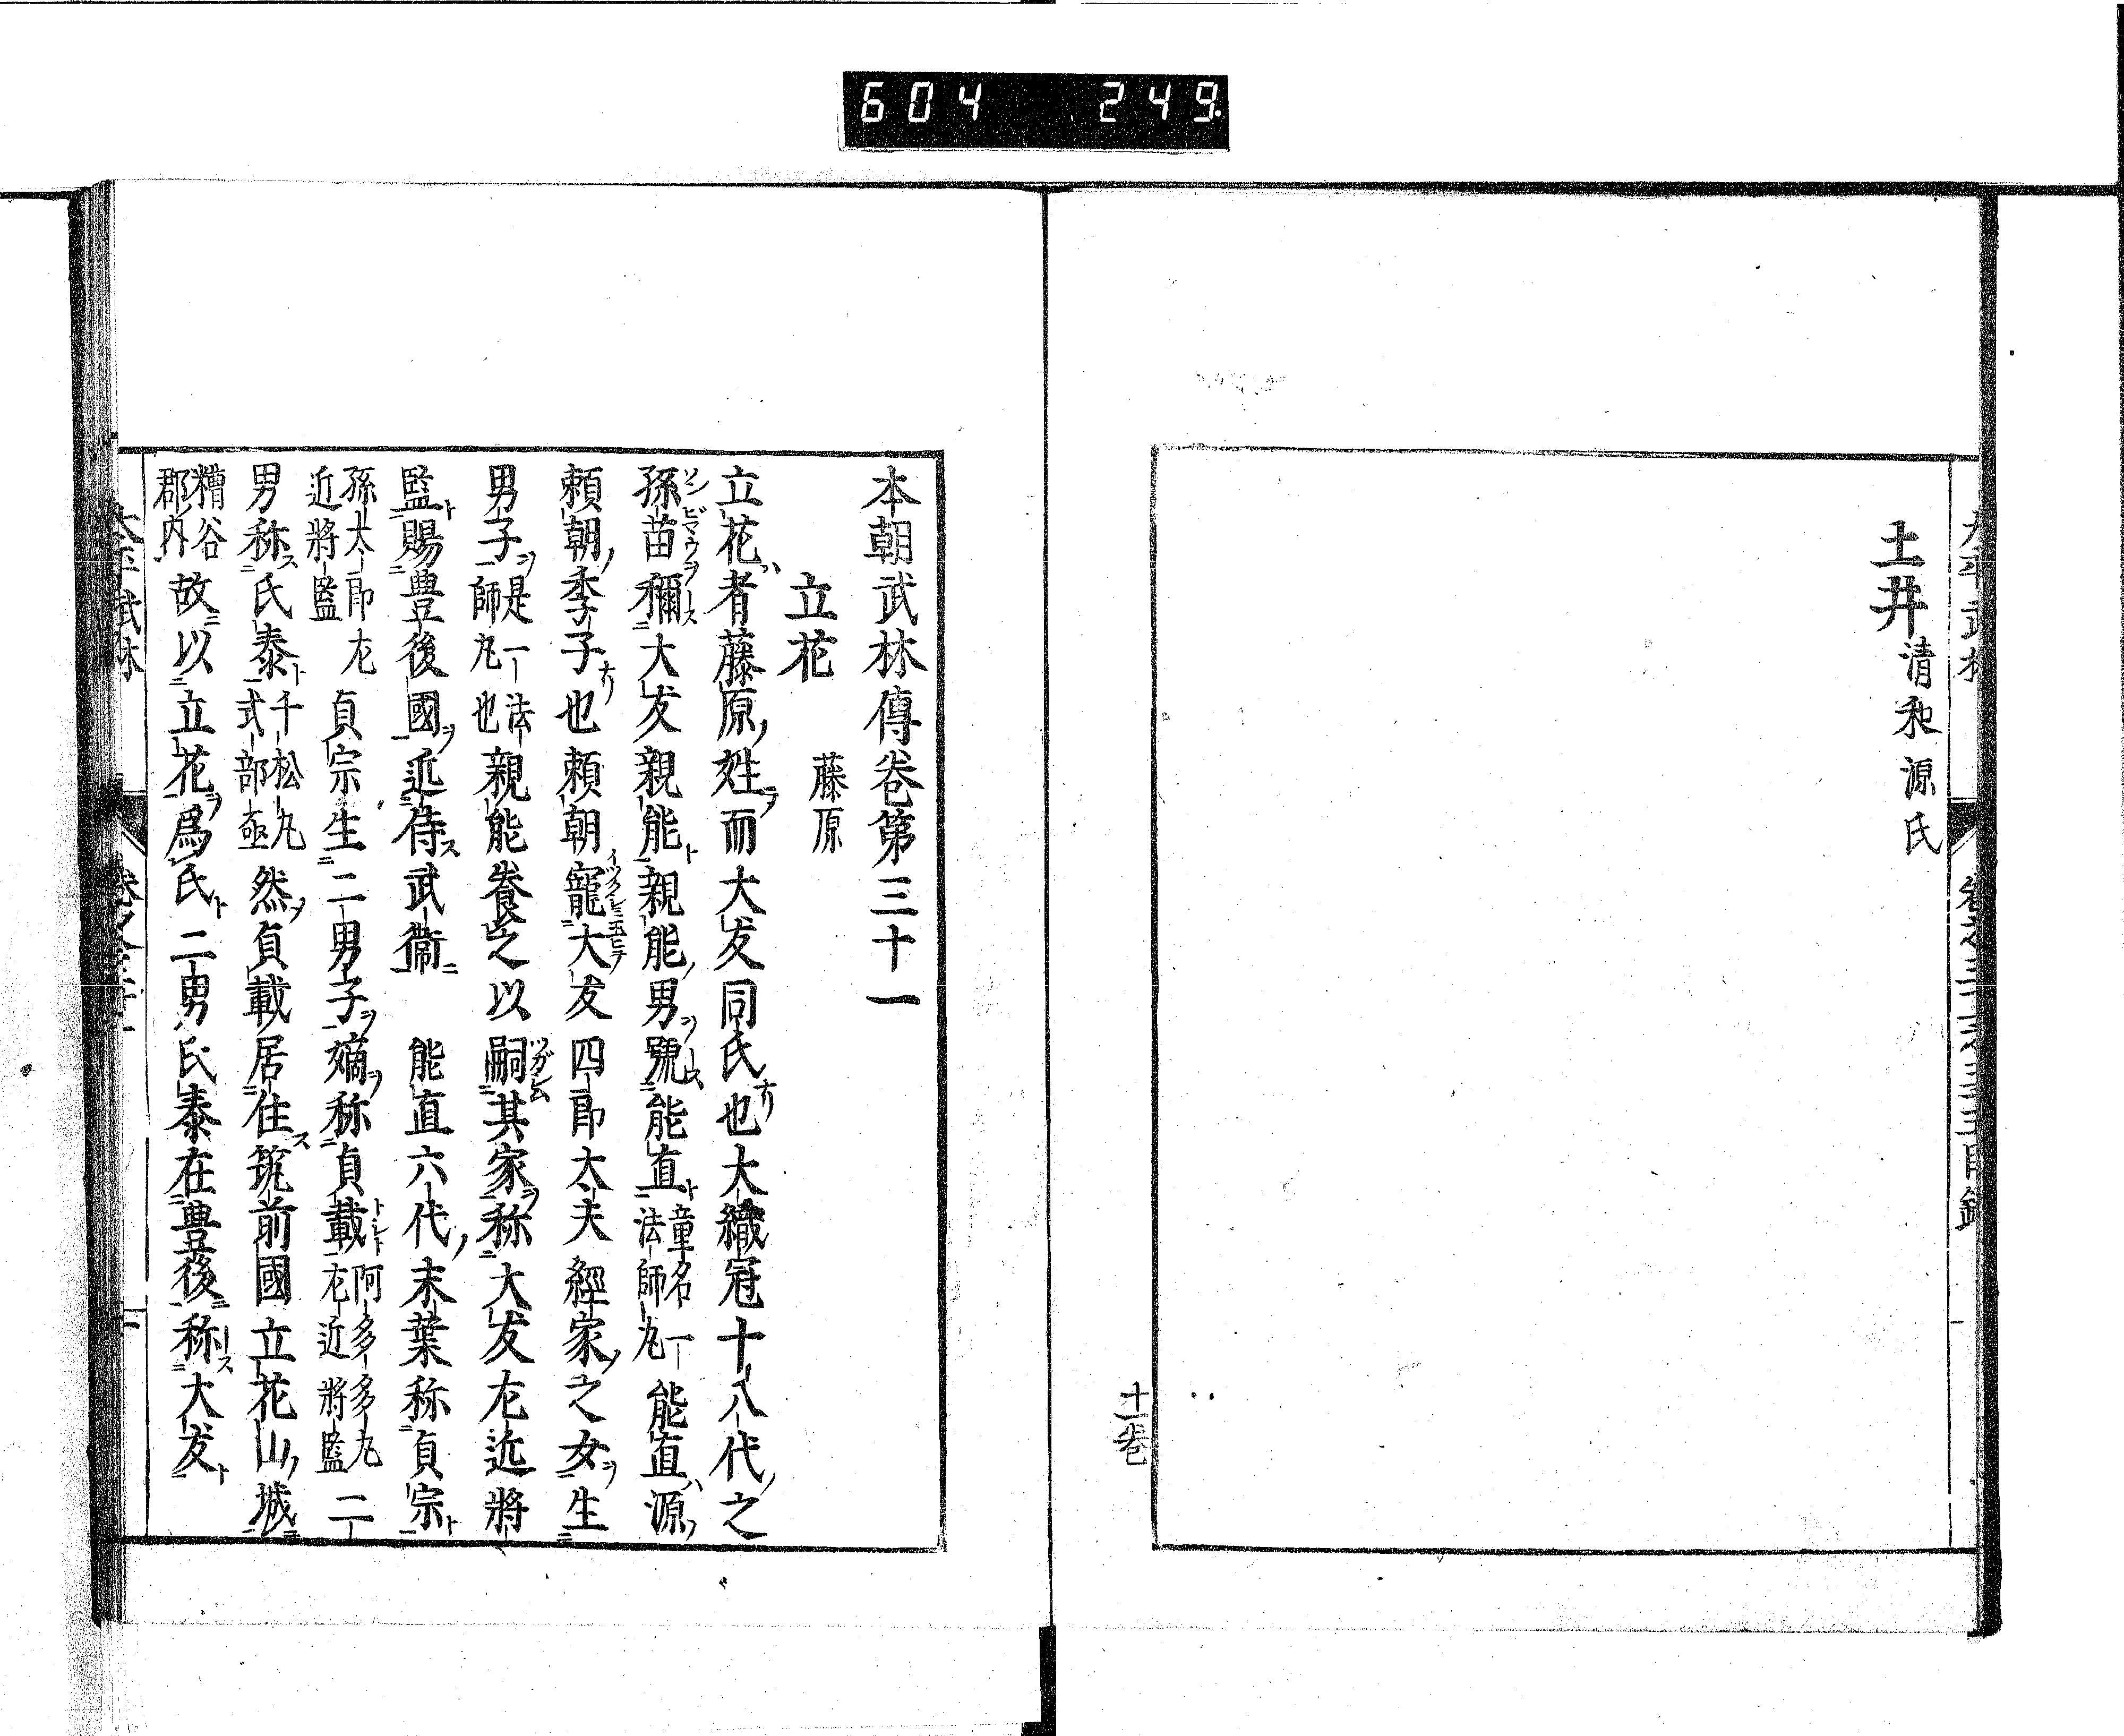 604 249.
土井 清和源氏
十一卷
本朝武林傳卷第三十一
立花 藤原
立花者藤原姓而大友同氏也大織冠十八代之
孫苗禰大友親能親能男號能直 童名一法師丸 能直源
頼朝季子也頼朝寵大友四郎太夫經家之女生
男子 是一法師丸也 親能養之以嗣其家称大友左近將
監賜豊後國近侍武衞 能直六代末葉称貞宗
孫太郎左近將監 貞宗生二男子嫡称貞載 阿多多丸左近將監 二
男称氏泰 千松丸式部亟 然貞載居住筑前國立花山城
糟谷郡内 故以立花爲氏二男氏泰在豊後称大友